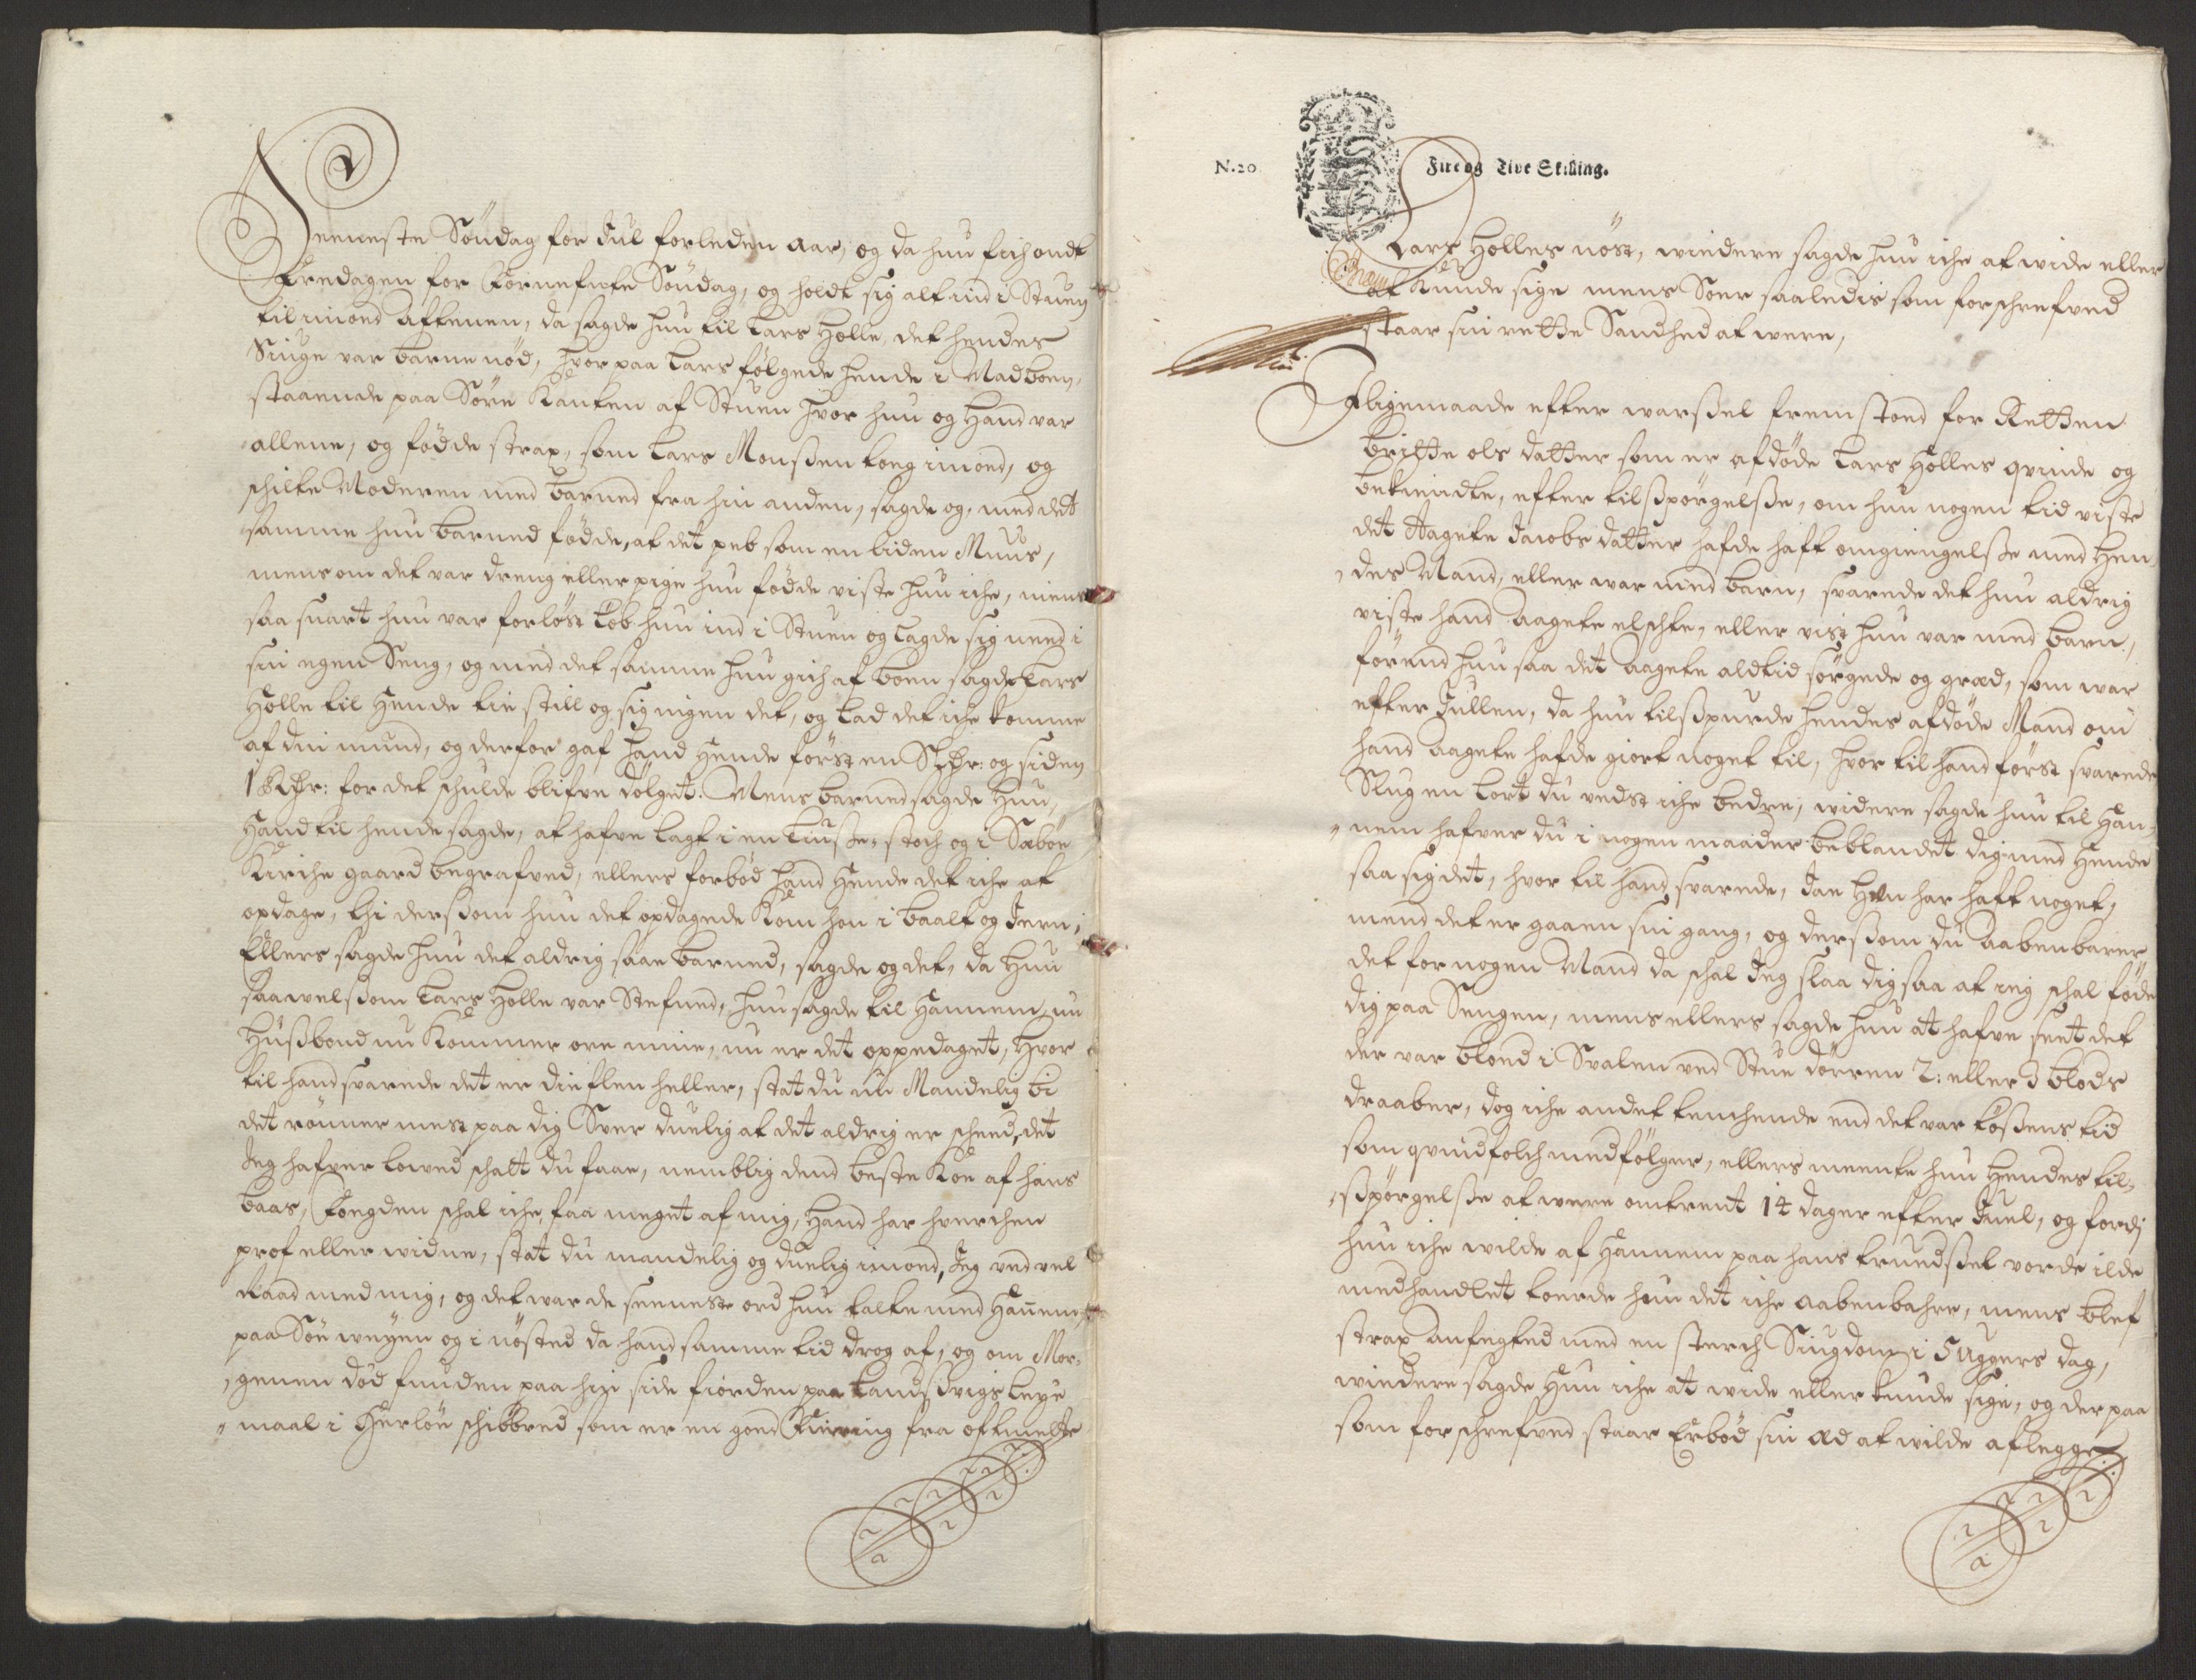 Seeneste Söndag for Jul forleden aar, og da huu fich ondt
Fredagen for Förnefnte Söndag, og holdt sig alt ind i Stuen
til imod aftenen, da sagde huu til Lars Holle det hendes
Siuge var barne nöd, hvor paa Lars fölgede hende i Madboen,
staaende paa Söre Kanten af Stuen hvor huu og Hand var
allene, og födde strax, som Lars Monßen toeg imod, og
schilte Moderen med barned fra hin anden, sagde og, med det
samme huu barned födde, at det peb som en liden Muus,
mens om det var dreng eller pige huu födde viste huu iche, mens
saa snart huu var forlöst Löb huu ind i Stuen og lagde sig need i
sin egen Seng, og med det samme huu gich af boen sagde Lars
Holle til Hende tie still og sig ingen det, og lad det iche komme
af din mund, og derfor gaf Hand Hende först en og siden
1 for det schulde blifve dölget. Mens barned sagde Huu,
Hand til hende sagde, at hafve lagt i en Liuße-stoch og i Sæböe
Kirche gaard begrafved, ellers forböd Hand Hende det iche at
opdage, thi dersom huu det opdagede Kom hon i baalt og Jern,
Ellers sagde huu det aldrig saae barned, sagde og det, da huu
saavelsom Lars Holle var Stefned, huu sagde til Hannem, nu
Hußbond nu Kommer ore mine, nu er det oppedaget, hvor
til hand svarede det er dieflen heller, stat du nu Mandelig bi
det rönner mest paa dig Sver duelig at det aldrig er scheed, det
Jeg hafver loved schalt du faae, nemblig dend beste Koe af hans
baas, Foegden schal iche faa meget af mig, Hand har hverchen
prof eller widne, stat du mandelig og duelig imod, Jeg ved vel
Raad med mig, og det war de seeneste ord huu talte med Hannem,
paa Söe weyen og i nösted da hand samme tid drog af, og om Mor-
genen död funden paa hin side fiorden paa Landsvigs leye
maal i Herlöe schibbred som er en goed fiering fra oftmelte
N.20 Fire og Tive Skilling.
Lars Holles nöst, windere sagde huu iche at wide eller
at Kunde sige mens Soer saaledis som forschrefved
staar sin rette Sandhed at were,
Jligemaade efter warßel fremstoed for Retten
Britte ols datter som er afdöde Lars Holles qvinde og
bekiendte, efter tilspörgelße, om huu nogen tid viste
det Aagete Jacobs datter hafde haft omgiengelße med Hen-
des Mand, eller war med barn, svarede det huu aldrig
viste hand Aagete elschte, eller vist huu var med barn,
förend huu saa det Aagete altid sörgede og græd, som war
efter Jullen, da huu tilspurde hendes afdöde Mand om
hand Aagete hafde giort noget til, hvor til hand först svarede
Slug en Lort du vedst iche bedre, widere sagde huu til Han-
nem hafver du i nogen maader beblandet dig med Hende
saa sig det, hvor til hand svarede, Jae Hun har hatt noget,
mend det er gaaen sin gang, og dersom du Aabenbarer
det for nogen Mand da schal Jeg slaa dig saa at ieg schal föde
dig paa Sengen, mens ellers sagde huu at hafve seet det
der var bloed i Svalen ved Stue dörren 2: eller 3 blods
draaber, dog iche andet tenchende end det var tößens tid
som qvindfolch medfölger, ellers meente huu Hendes til-
spörgelße at were omtrent 14 dager efter Juel, og fordj
huu iche wilde af Hannem paa hans trudsel vorde ilde
medhandlet toerde huu det iche aabenbahre, mens blef
strax anfegted med en sterch Siugdom i 5 uggers dag,
windere sagde Huu iche at wide eller kunde sige, og derpaa
som forschrefved staar Erböd sin æd at wilde aflegge